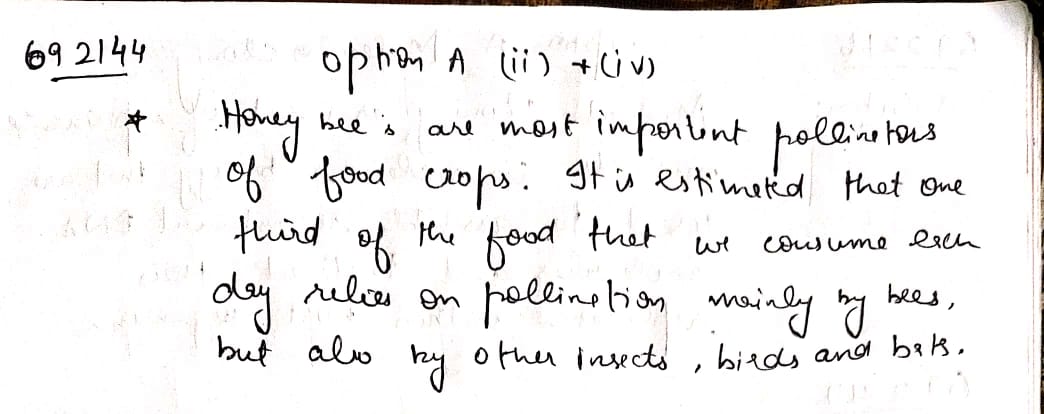 692144 option A (ii) + (iv)
* Honey bee's are most important pollinators
of food crops. It is estimated that one
third of the food that we consume each
day relies on pollination mainly by bees,
but also by other insects, birds and bats.